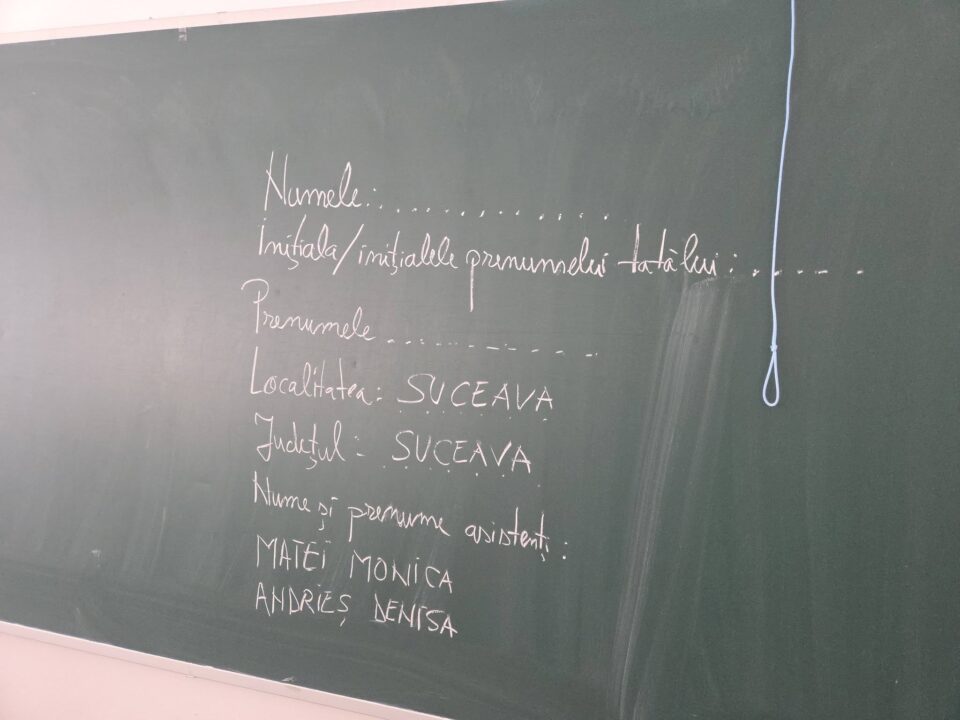 Numele: . . . . . . . . . . . . .
Inițiala/inițialele prenumelui tatălui : . . . . .
Prenumele . . . . . . . . . . . . .
Localitatea: SUCEAVA
Județul: SUCEAVA
Nume și prenume asistenți:
MATEI MONICA
ANDRIEȘ DENISA